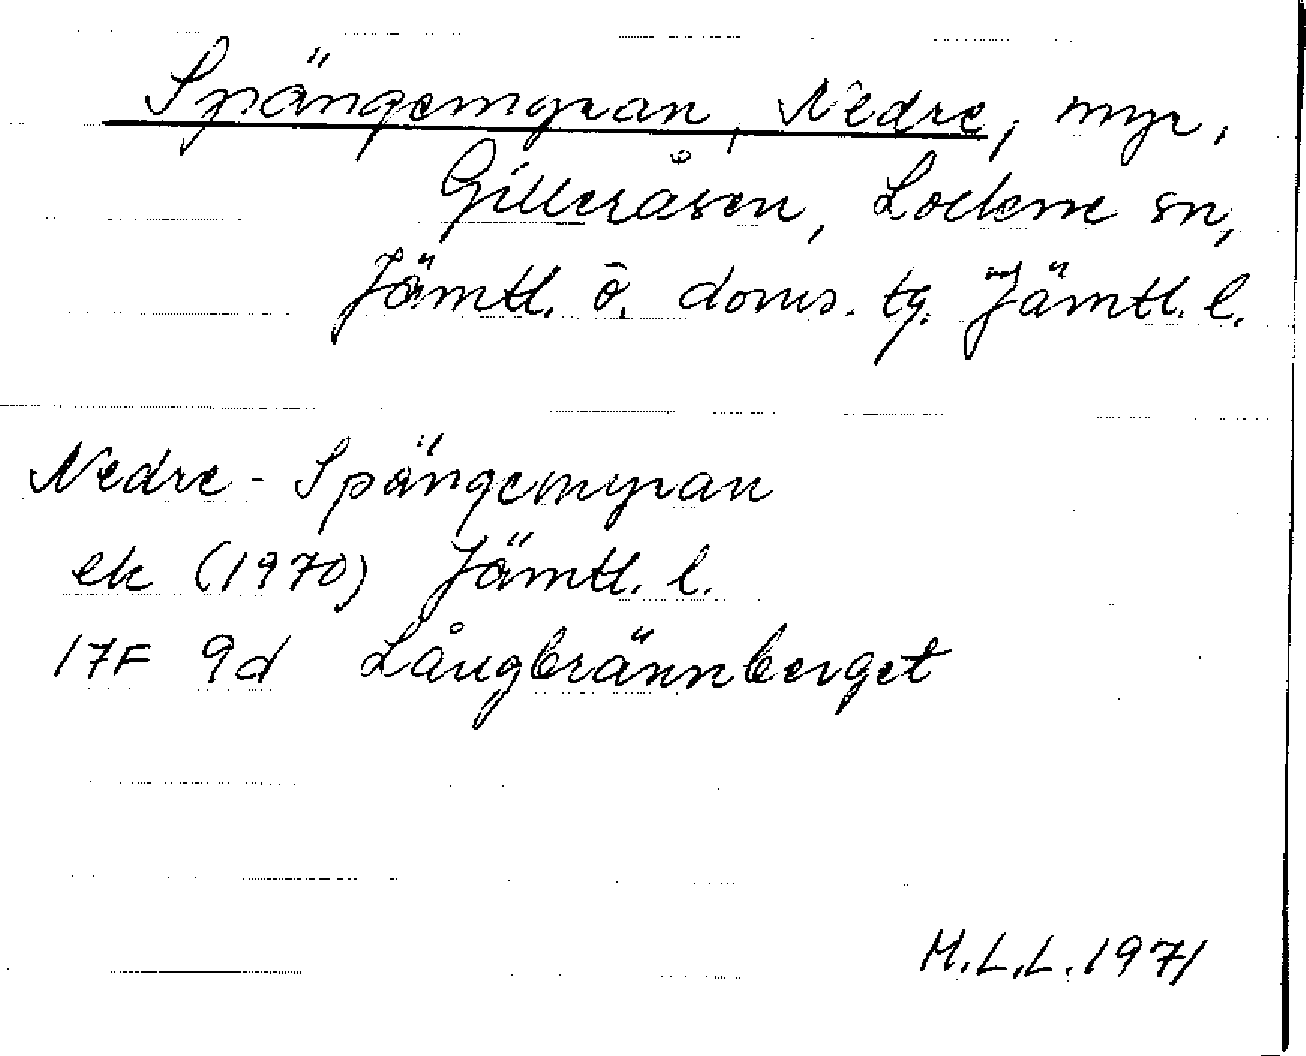 Spängemyran, Nedre, myr,
Gilleråsen, Lockne sn,
Jämtl. ö. doms. tg. Jämtl. l.
Nedre-Spängemyran
ek (1970) Jämtl. l.
17F 9d Långbrännberget
M.L.L. 1971